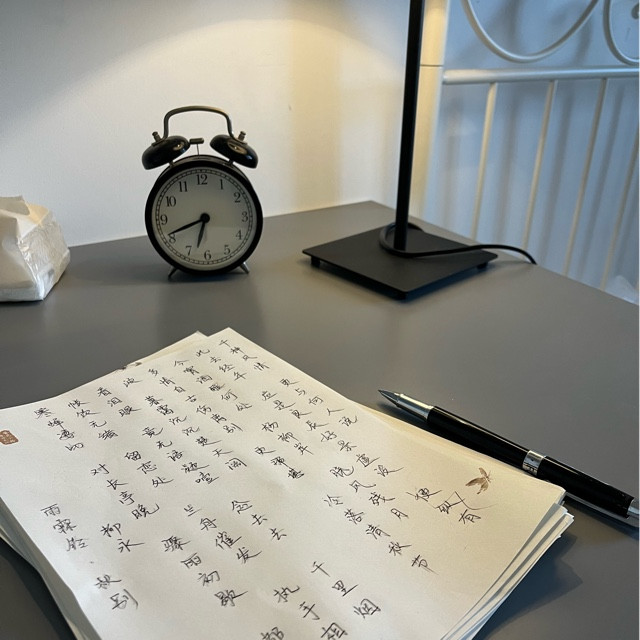 雨霖铃·秋别
柳永
寒蝉凄切 对长亭晚 骤雨初歇 都
帐饮无绪 留恋处 兰舟催发 执手相
看泪眼 竟无语凝噎 念去去 千里烟
波 暮霭沉沉楚天阔
多情自古伤离别 更那堪 冷落清秋节
今宵酒醒何处 杨柳岸 晓风残月
此去经年 应是良辰好景虚设 便纵有
千种风情 更与何人说
12
1
2
3
4
5
6
7
8
9
10
11